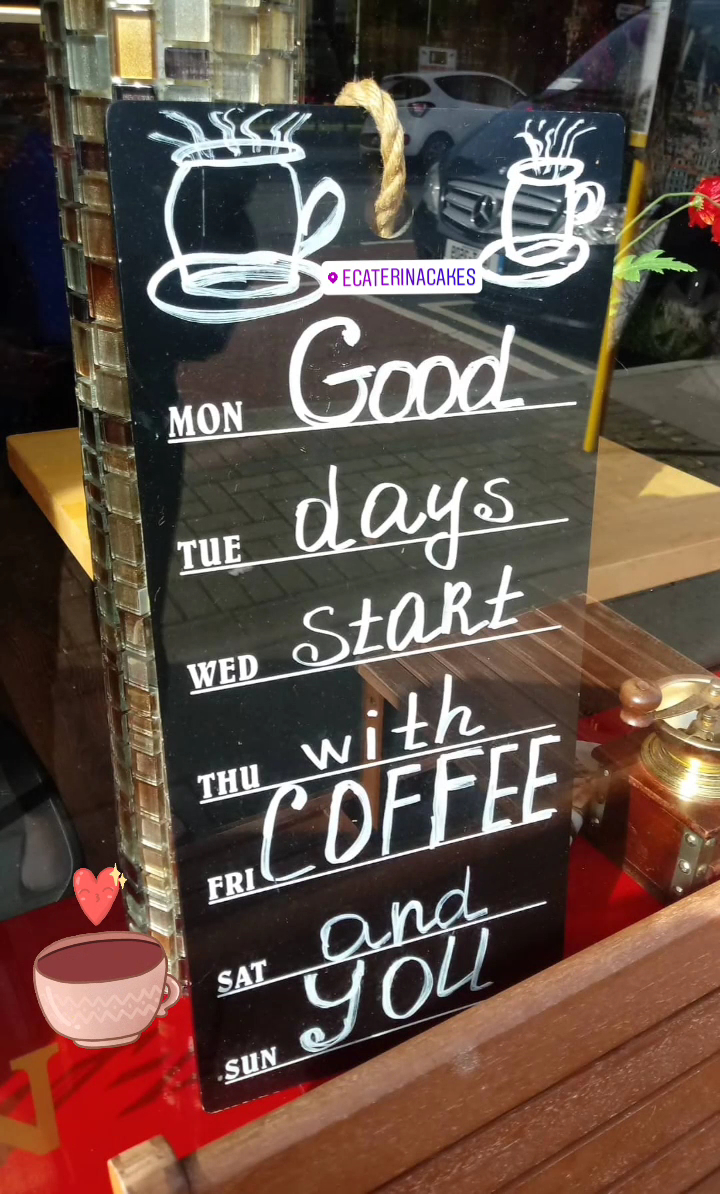 ECATERINACAKES
MON Good
TUE days
WED StaRt
THU with
FRI COFFEE
SAT and
SUN you